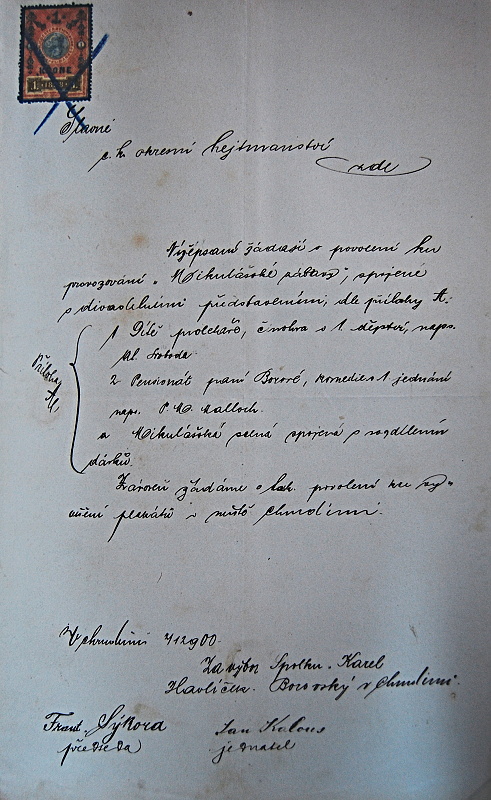 1
KRONE
1 1898 1
Slavné
c. k. okresní hejtmanství
zde
Nížepsaní žádají o povolení ku
provozování „Mikulášské zábavy", spojené
s divadelními představeními, dle přílohy A:
Příloha
A
1 Dítě proletáře, činohra o 1 dějství, naps.
Kl. Svoboda.
2 Pensionát paní Bozové, komedie o 1 jednání
naps. P. M. Malloch.
a Mikulášská scéna spojená s rozdílením
dárků.
Zároveň žádáme o lask. povolení ku vy-
věšení plakátů v městě Chrudimi.
V Chrudimi 7 12 900
Za výbor Spolku Karel
Havlíček Borovský v Chrudimi.
Frant. Sýkora
předseda
Jan Kalous
jednatel